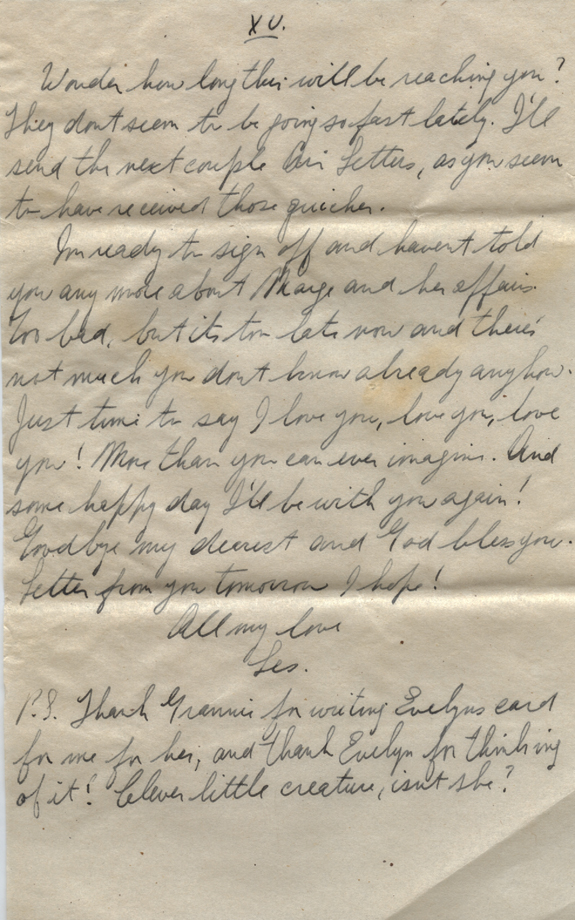 XV.
Wonder how long this will be reaching you?
They dont seem to be going so fast lately. I'll
send the next couple Air Letters, as you seem
to have received those quicker.
Im ready to sign off and havent told
you any more about Marge and her affairs.
Too bad, but its too late now and there's
not much you dont know already anyhow.
Just time to say I love you, love you, love
you! More than you can ever imagine. And
some happy day I'll be with you again!
Goodbye my dearest and God bless you.
Letter from you tomorrow I hope!
All my love
Les.
P.S. Thank Grannie for writing Evelyns card
for me for her, and thank Evelyn for thinking
of it! Clever little creature, isnt she?